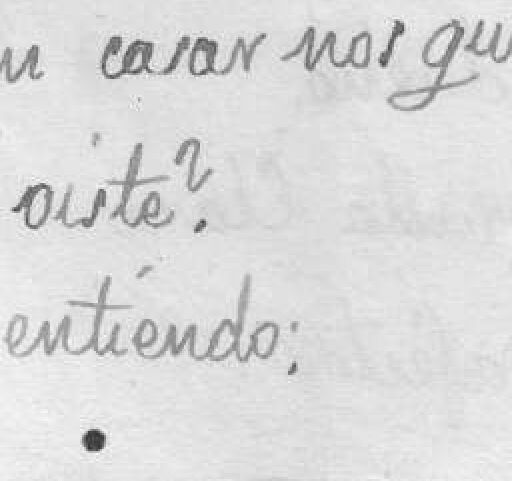 casar nos qu
oiste?
entiendo;